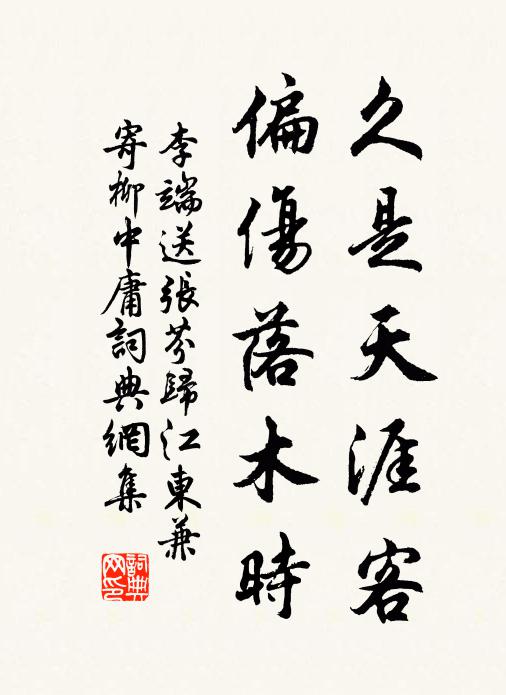 久是天涯客
偏傷落木時
李端送張芬歸江東兼
寄柳中庸詞典網集
詞典
网印